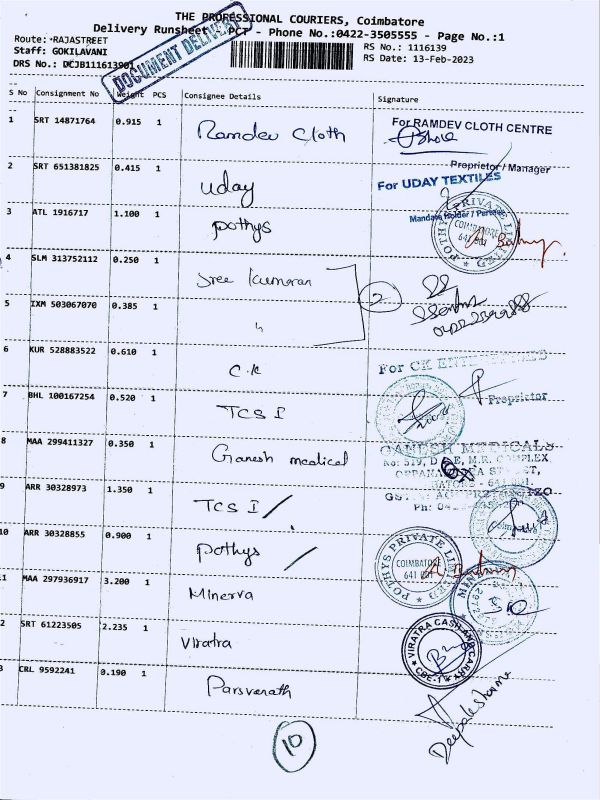 THE PROFESSIONAL COURIERS, Coimbatore
Delivery Runsheet - PCT - Phone No.:0422-3505555 - Page No.:1
Route: RAJASTREET
RS No.: 1116139
Staff: GOKILAVANI
RS Date: 13-Feb-2023
DRS No.: DCJB111613901
DOCUMENT DELIVERY
S No Consignment No Weight PCS Consignee Details Signature
1 SRT 14871764 0.915 1 Ramdev Cloth
For RAMDEV CLOTH CENTRE
Proprietor / Manager
2 SRT 651381825 0.415 1 uday
For UDAY TEXTILES
3 ATL 1916717 1.100 1 pothys
POTHYS PRIVATE LIMITED
COIMBATORE
641 001
4 SLM 313752112 0.250 1 Sree Kumaran
2
5 IXM 503067070 0.385 1 "
6 KUR 528883522 0.610 1 C.K
For CK
Proprietor
7 BHL 100167254 0.520 1 TCS I
8 MAA 299411327 0.350 1 Ganesh medical
GANESH MEDICALS
9 ARR 30328973 1.350 1 TCS I /
10 ARR 30328855 0.900 1 pothys /
POTHYS PRIVATE LIMITED
COIMBATORE
641 001
11 MAA 297936917 3.200 1 Minerva
2 SRT 61223505 2.235 1 Viratra
VIRATRA
CBE-1
3 CRL 9592241 0.190 1 Parsvanath
10